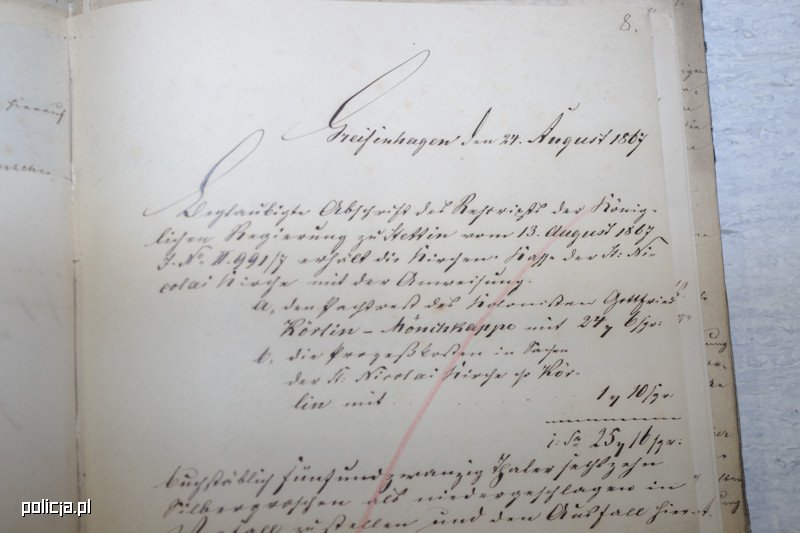 8.
Greifenhagen den 24. August 1867
Beglaubigte Abschrift des Rescripts der König-
lichen Regierung zu Stettin vom 13. August 1867
J. No. III. 991/7 erhält die Kirchen-Kasse der St. Ni-
colai Kirche mit der Anweisung:
a, den Pachtrest des Kolonisten Gottfried
Körlin - Mönchkappe mit 24 6 sgr:
b, die Prozeßkosten in Sachen
der St. Nicolai Kirche c/a Kör-
lin mit 1 10 sgr.
25 16 sgr:
buchstäblich fünfundzwanzig Thaler sechszehn
Silbergroschen als niedergeschlagen in
zu stellen und den Ausfall hier
policja.pl